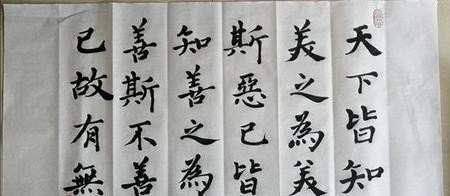 天下皆知
美之為美
斯惡已皆
知善之為
善斯不善
已故有無